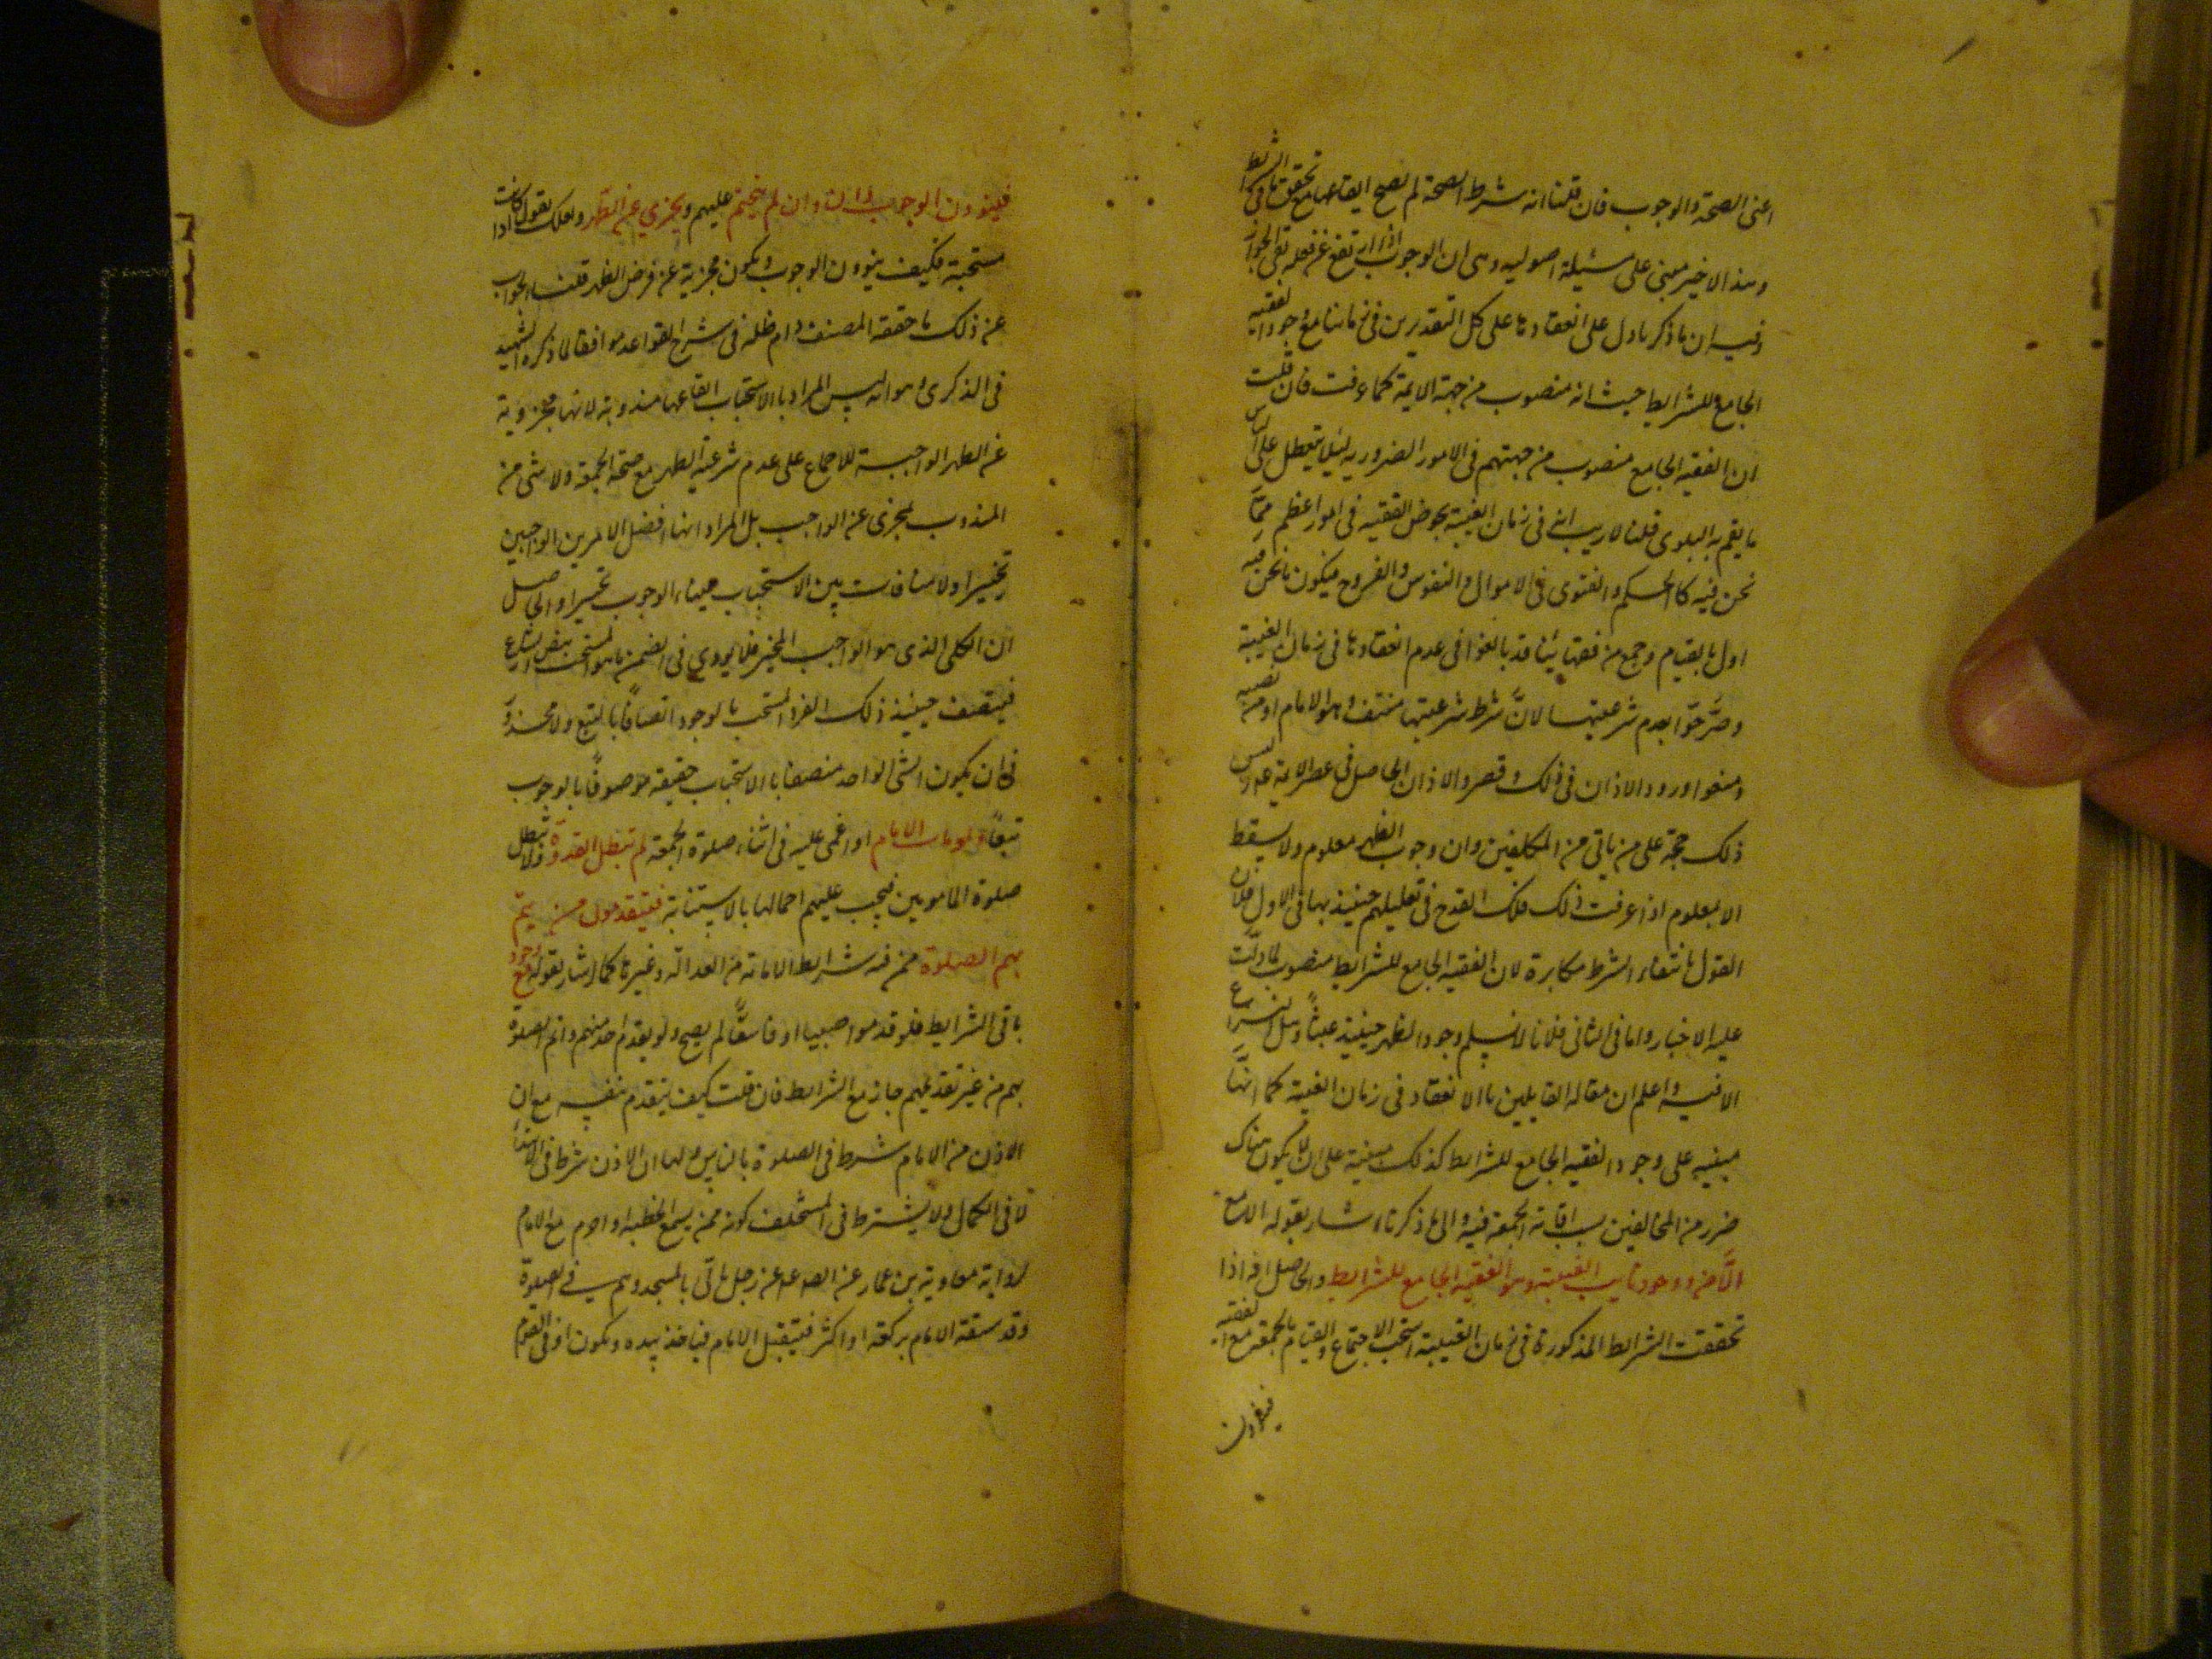 اعنى الصحة والوجوب فان قلنا انه شرط الصحة لم تصح ايقاعها مع تحقق باقى الشرايط
وهذا الاخير مبنى على مسئلة اصولية وهى ان الوجوب اذا ارتفع عن فعله بقى الجواز
وفيه ان ما ذكر ما دل على انعقادها على كل التقديرين فى زماننا مع وجود الفقيه
الجامع للشرايط حيث انه منصوب من جهة الايمة كما عرفت فان قلت
ان الفقيه الجامع منصوب من جهتهم فى الامور الضرورية ليلا يتعطل على الناس
ما يعم به البلوى قلنا لا ريب انه فى زمان الغيبة يخوض الفقيه فى امور اعظم مما
نحن فيه كالحكم والفتوى فى الاموال والنفوس والفروج فيكون ما نحن فيه
اولى بالقيام وجمع من فقهائنا قد بالغوا فى عدم انعقادها فى زمان الغيبة
وصرّحوا بعدم شرعيتها لانّ شرط شرعيتها منتف وهو الامام او من نصبه
ومنعوا ورود الاذن فى ذلك وقصروا الاذن الحاصل فى عصر الايمة ع وليس
ذلك حجة على من ياتى من المكلفين وان وجوب الظهر معلوم ولا يسقط
الا بمعلوم اذا عرفت ذلك فلك القدح فى تعليلهم حينئذ بها فى الاول فلان
القول بانتفاء الشرط مكابرة لان الفقيه الجامع للشرايط منصوب لما دلّت
عليه الاخبار واما فى الثانى فلانا لا نسلم وجود الظهر حينئذ عبثاً وهل النزاع
الا فيه واعلم ان مقالة القايلين بالانعقاد فى زمان الغيبة كما انها
مبنية على وجود الفقيه الجامع للشرايط كذلك مبنية على ان لا يكون هناك
ضرر من المخالفين بسبب اقامة الجمعة فيه والى ما ذكرناه اشار بقوله الا مع
الامن ووجود نايب الغيبة وهو الفقيه الجامع للشرايط والحاصل انه اذا
تحققت الشرايط المذكورة فى زمان الغيبة استحب الاجتماع والقيام بالجمعة مع الفقيه
فينوون
فينوون الوجوب وان لم يتحتم عليهم ويجزى عن الظهر ولعلك تقول اذا كانت
مستحبة فكيف ينوون الوجوب ويكون مجزية عن فرض الظهر قلنا الجواب
عن ذلك ما حققه المصنف دام ظله فى شرح القواعد موافقا لما ذكره الشهيد
فى الذكرى وهو انه ليس المراد بالاستحباب ايقاعها مندوبة لانها مجزوية
عن الظهر الواجبة للاجماع على عدم شرعية الظهر مع صحة الجمعة ولا شئ من
المندوب بمجزى عن الواجب بل المراد انها افضل الامرين الواجبين
تخييرا ولا منافات بين الاستحباب عينا والوجوب تخييرا والحاصل
ان الكلى الذى هو الواجب المخير فلا يودى فى ضمن ما هو المستحب بنص الشارع
فيتصف حينئذ ذلك الفرد المستحب بالوجود اتصافاً بالتبع ولا محذور
فى ان يكون الشئ الواحد متصفا بالاستحباب حقيقة موصوفاً بالوجوب
تبعاً ولو مات الامام او اغمى عليه فى اثناء صلوة الجمعة لم تبطل القدوة ولا تبطل
صلوة المامومين فيجب عليهم اكمالها بالاستنابة فيقدمون من يتم
بهم الصلوة ممن فيه شرايط الامامة من العدالة وغيرها كما اشار بقوله مع وجود
باقى الشرايط فلو قدموا صبيا او فاسقاً لم يصح ولو يقدم احد منهم واتم الصلوة
بهم من غير تقديمهم جاز مع الشرايط فان قلت كيف يتقدم بنفسه مع ان
الاذن من الامام شرط فى الصلوة بالناس قلنا ان الاذن شرط فى الابتداء
لا فى الاكمال ولا يشترط فى المستخلف كونه ممن يسمع الخطبة او احرم مع الامام
لرواية معاوية بن عمار عن الصادق ع عن رجل ياتى بالمسجد وهم فى الصلوة
وقد سبقه الامام بركعة او اكثر فيتقبل الامام فياخذ بيده ويكون ادنى القوم